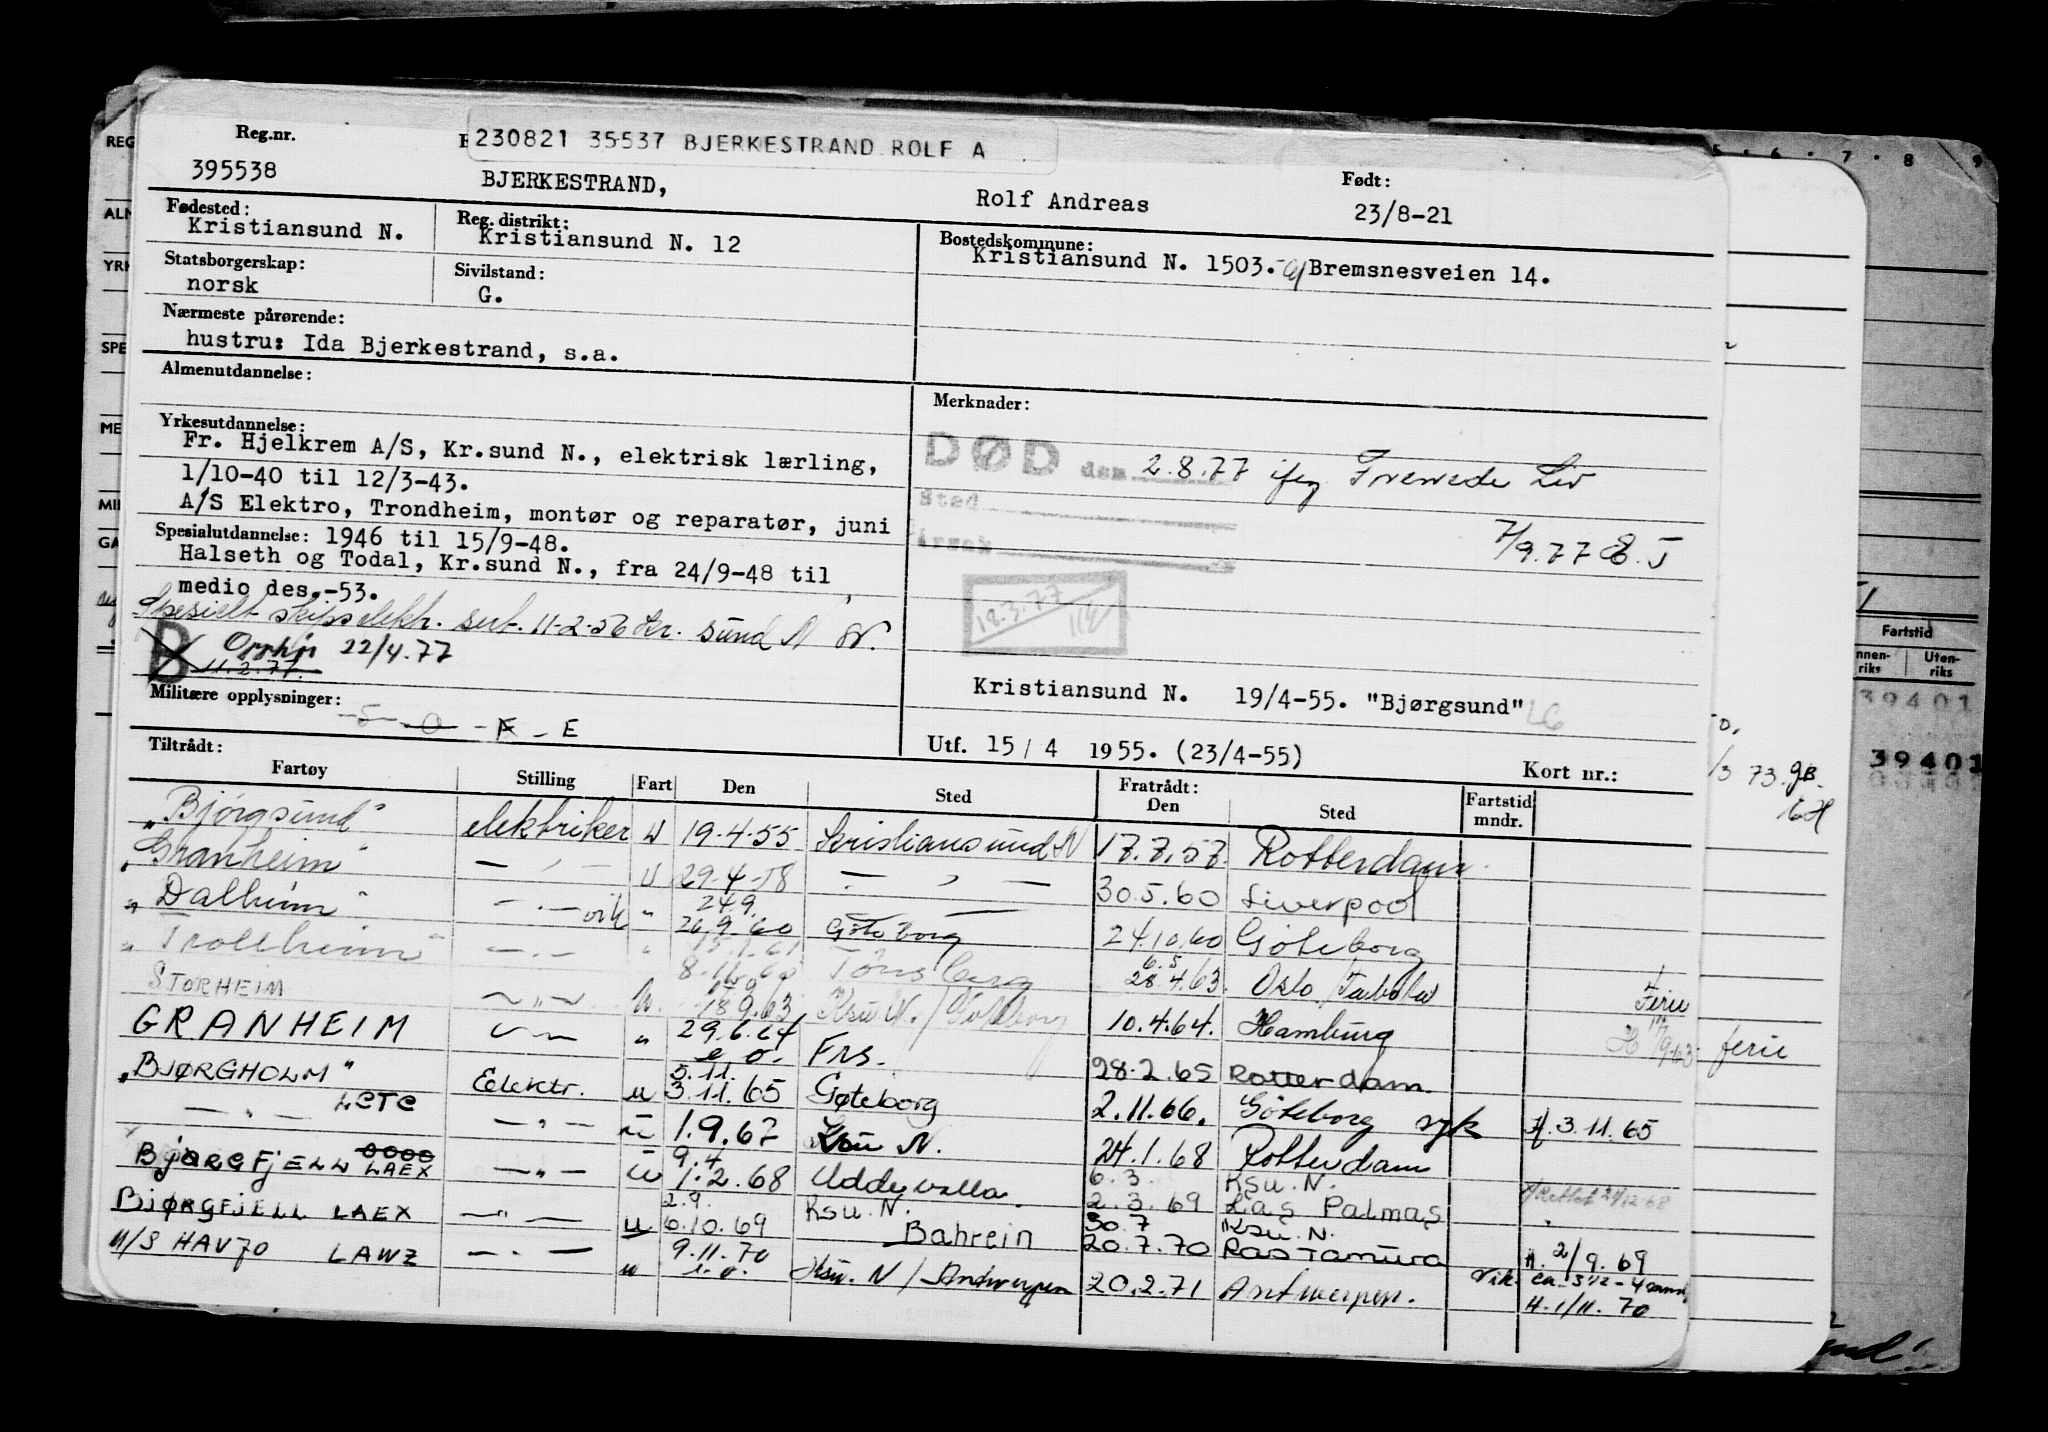 Reg.nr.
230821 35537 BJERKESTRAND ROLF A
395538 BJERKESTRAND, Rolf Andreas
Født:
23/8-21
Fødested:
Kristiansund N.
Reg. distrikt:
Kristiansund N. 12
Bostedskommune:
Kristiansund N. 1503. Bremsnesveien 14.
Statsborgerskap:
norsk
Sivilstand:
G.
Nærmeste pårørende:
hustru: Ida Bjerkestrand, s.a.
Almenutdannelse:
Yrkesutdannelse:
Fr. Hjelkrem A/S, Kr.sund N., elektrisk lærling,
1/10-40 til 12/3-43.
A/S Elektro, Trondheim, montør og reparatør, juni
Spesialutdannelse: 1946 til 15/9-48.
Halseth og Todal, Kr.sund N., fra 24/9-48 til
medio des.-53.
Spesielt skipselektr. sert. 11-2-56 Kr. sund N
B 22/4.77
11.2.77.
Militære opplysninger:
E
Merknader:
DØD den 2.8.77
Sted
Årsak
7/9.77
12.3.77
Kristiansund N. 19/4-55. "Bjørgsund"
Utf. 15/4 1955. (23/4-55)
Kort nr.:
Tiltrådt:
Fartøy Stilling Fart Den Sted Fratrådt: Den Sted Fartstid mndr.
"Bjørgsund" elektriker u 19.4.55 Kristiansund N 17.7.57 Rotterdam
"Granheim" — " — u 29.4.58 — " — 30.5.60 Liverpool
"Dalheim" — " — vik " 24.9. 26.9.60 Göteborg 24.10.60 Göteborg
"Trollheim" — " — " Tønsberg 6.5 28.4.63. Oslo
STORHEIM — " — u. 18.9.63 Ksu N. / Göteborg 10.4.64. Hamburg Ferie
GRANHEIM — " — " 29.6.64 e.o. Frs. 28.2.65 Rotterdam ferie
"BJØRGHOLM" Elektr. u 5.11. 3.11.65 Gøteborg 2.11.66. Göteborg syk 3.11.65
— " — LCTC — " — u 1.9.67 Ksu N. 24.1.68 Rotterdam
BJØRGFJELL LAEX — " — u 9.4 1.2.68 Uddevalla 6.3. 2.3.69 Ksu. N. Las Palmas
BJØRGFJELL LAEX — " — u 2.9. 6.10.69 Ksu. N. Bahrein 30.7 20.7.70 Ksu. N. Ras Tanura H. 2/9.69
M/S HAV70 LAWZ — " — u 9.11.70 e.o. Ksu. N / Antwerpen 20.2.71 Antwerpen. Vik. ca. 3 1/2 - 4 mnd
H. 1/11.70
Fartstid
Uten-
riks
39401
39401
73.